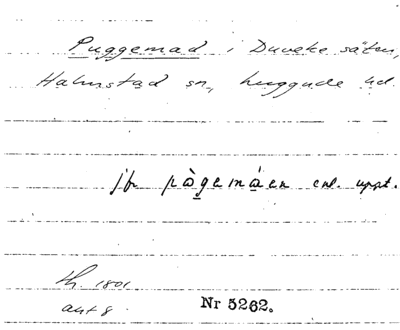 Puggemad i Duveke säteri,
Halmstad sn, Luggude hd.
jfr pàgemáen enl. uppt.
th. 1801
akt 8
Nr 5262.